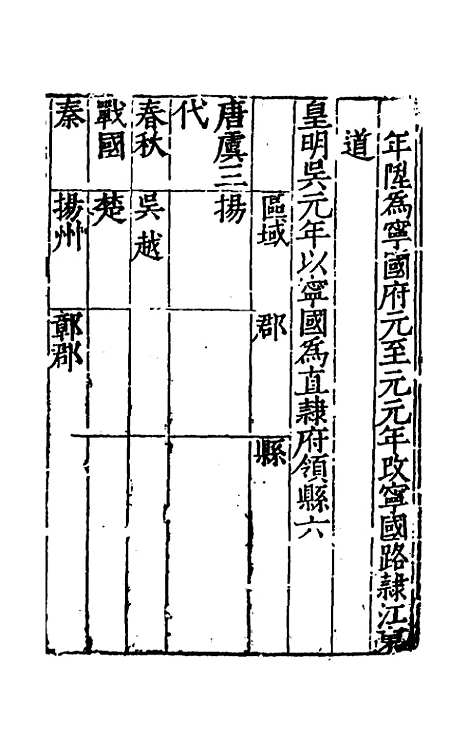 年陞為寧國府元至元元年改寧國路隷江東
道
皇明吳元年以寧國為直隷府領縣六
區域 郡 縣
唐虞三代 揚
春秋 吳越
戰國 楚
秦 揚州 鄣郡